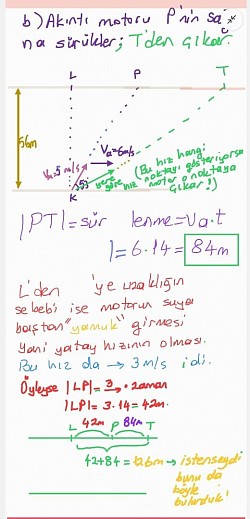 b) Akıntı motoru P'nin sağı
na sürükler; T'den çıkar.
L P T
56m
Va=6m/s
5 m/s
(Bu hız hangi
noktayı gösteriyorsa
motor o noktaya
çıkar!)
yere
göre
hız
53
K
|PT|=sürüklenme=Va.t
|=6.14=84m
L'den 'ye uzaklığın
sebebi ise motorun suya
baştan "yamuk" girmesi
yani yatay hızının olması.
Bu hız da → 3 m/s idi.
Öyleyse |LP|=3.zaman
|LP|=3.14=42m.
42m 84m
L P T
42+84=126m → istenseydi
bunu da
böyle
bulurduk!